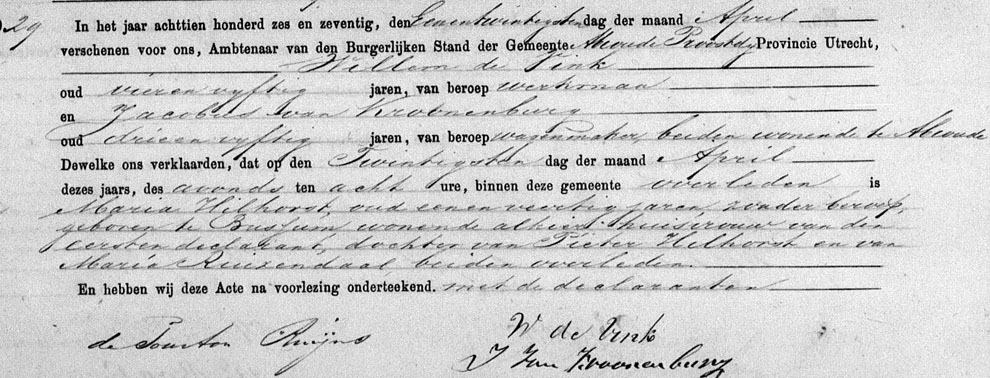 29
In het jaar achttien honderd zes en zeventig, den Eenentwintigsten dag der maand April
verschenen voor ons, Ambtenaar van den Burgerlijken Stand der Gemeente Abcoude Proostdy Provincie Utrecht,
Willem de Vink
oud vieren vyftig jaren, van beroep werkman
en Jacobus van Kroonenburg
oud drieen vyftig jaren, van beroep wagenmaker, beiden wonende te Abcoude
Dewelke ons verklaarden, dat op den Twintigsten dag der maand April
dezes jaars, des avonds ten acht ure, binnen deze gemeente overleden is
Maria Hilhorst, oud eenen veertig jaren, zonder beroep,
geboren te Bussum, wonende alhier, huisvrouw van den
eersten declarant, dochter van Pieter Hilhorst en van
Maria Ruizendaal, beiden overleden.
En hebben wij deze Acte na voorlezing onderteekend. met de declaranten
de Tourton Ruijns W de Vink
J Van Kroonenburg